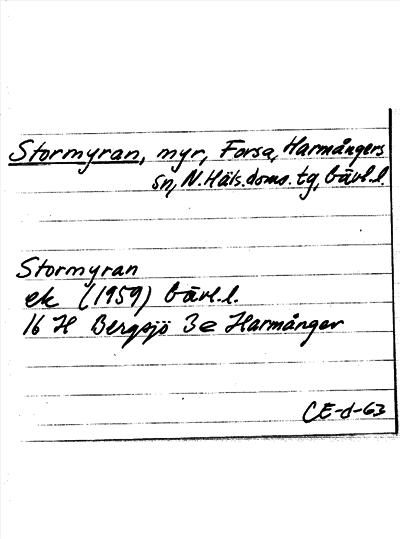 Stormyran, myr, Forsa, Harmångers
sn, N. Häls. doms. tg, Gävl. l.
Stormyran
ek (1959) Gävl. l.
16 H Bergsjö 3 e Harmånger
CE-d-63